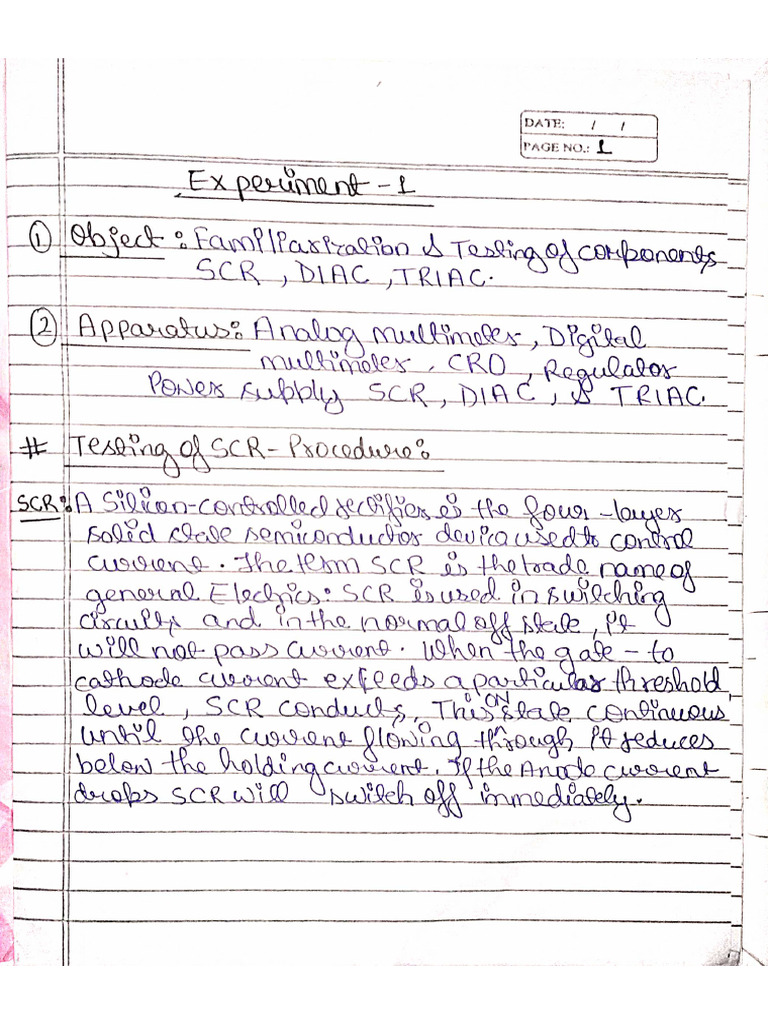 DATE: / /
PAGE NO.: 1
Experiment - 1
① Object : Familiarization & Testing of components
SCR, DIAC, TRIAC.
② Apparatus: Analog multimeter, Digital
multimeter, CRO, Regulator
Power supply SCR, DIAC, & TRIAC.
# Testing of SCR - Procedure:
SCR: A Silicon-controlled rectifier is the four-layer
solid state semiconductor device used to control
current. The term SCR is the trade name of
general Electrics. SCR is used in switching
circuits and in the normal off state, it
will not pass current. When the gate - to
cathode current exfeeds a particular threshold
level, SCR conducts, This is ON state continuous
until the current flowing through it reduces
below the holding current. If the Anode current
drops SCR will switch off immediately.